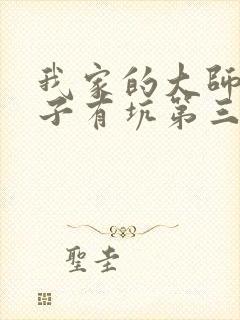 我家的大師
子有坑第三
聖圭